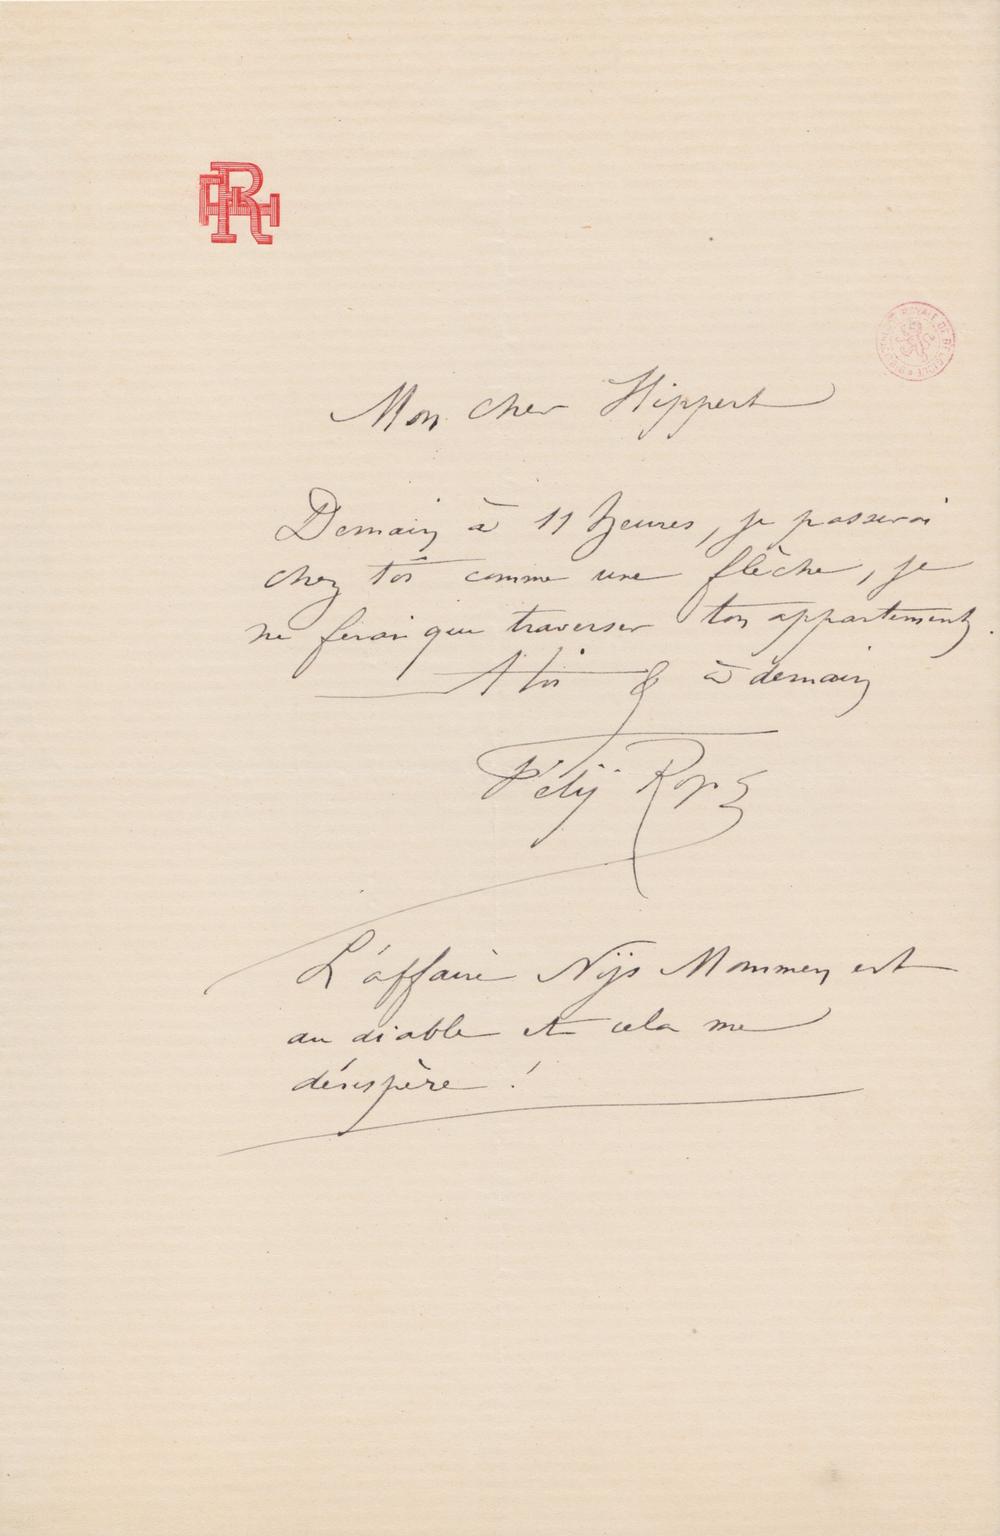 Mon cher Hippert
Demain à 11 heures, je passerai
chez toi comme une flèche, je
ne ferai que traverser ton appartement.
A toi & à demain
Fély Rops
L'affaire Nijs Mommen est
au diable et cela me
désespère !